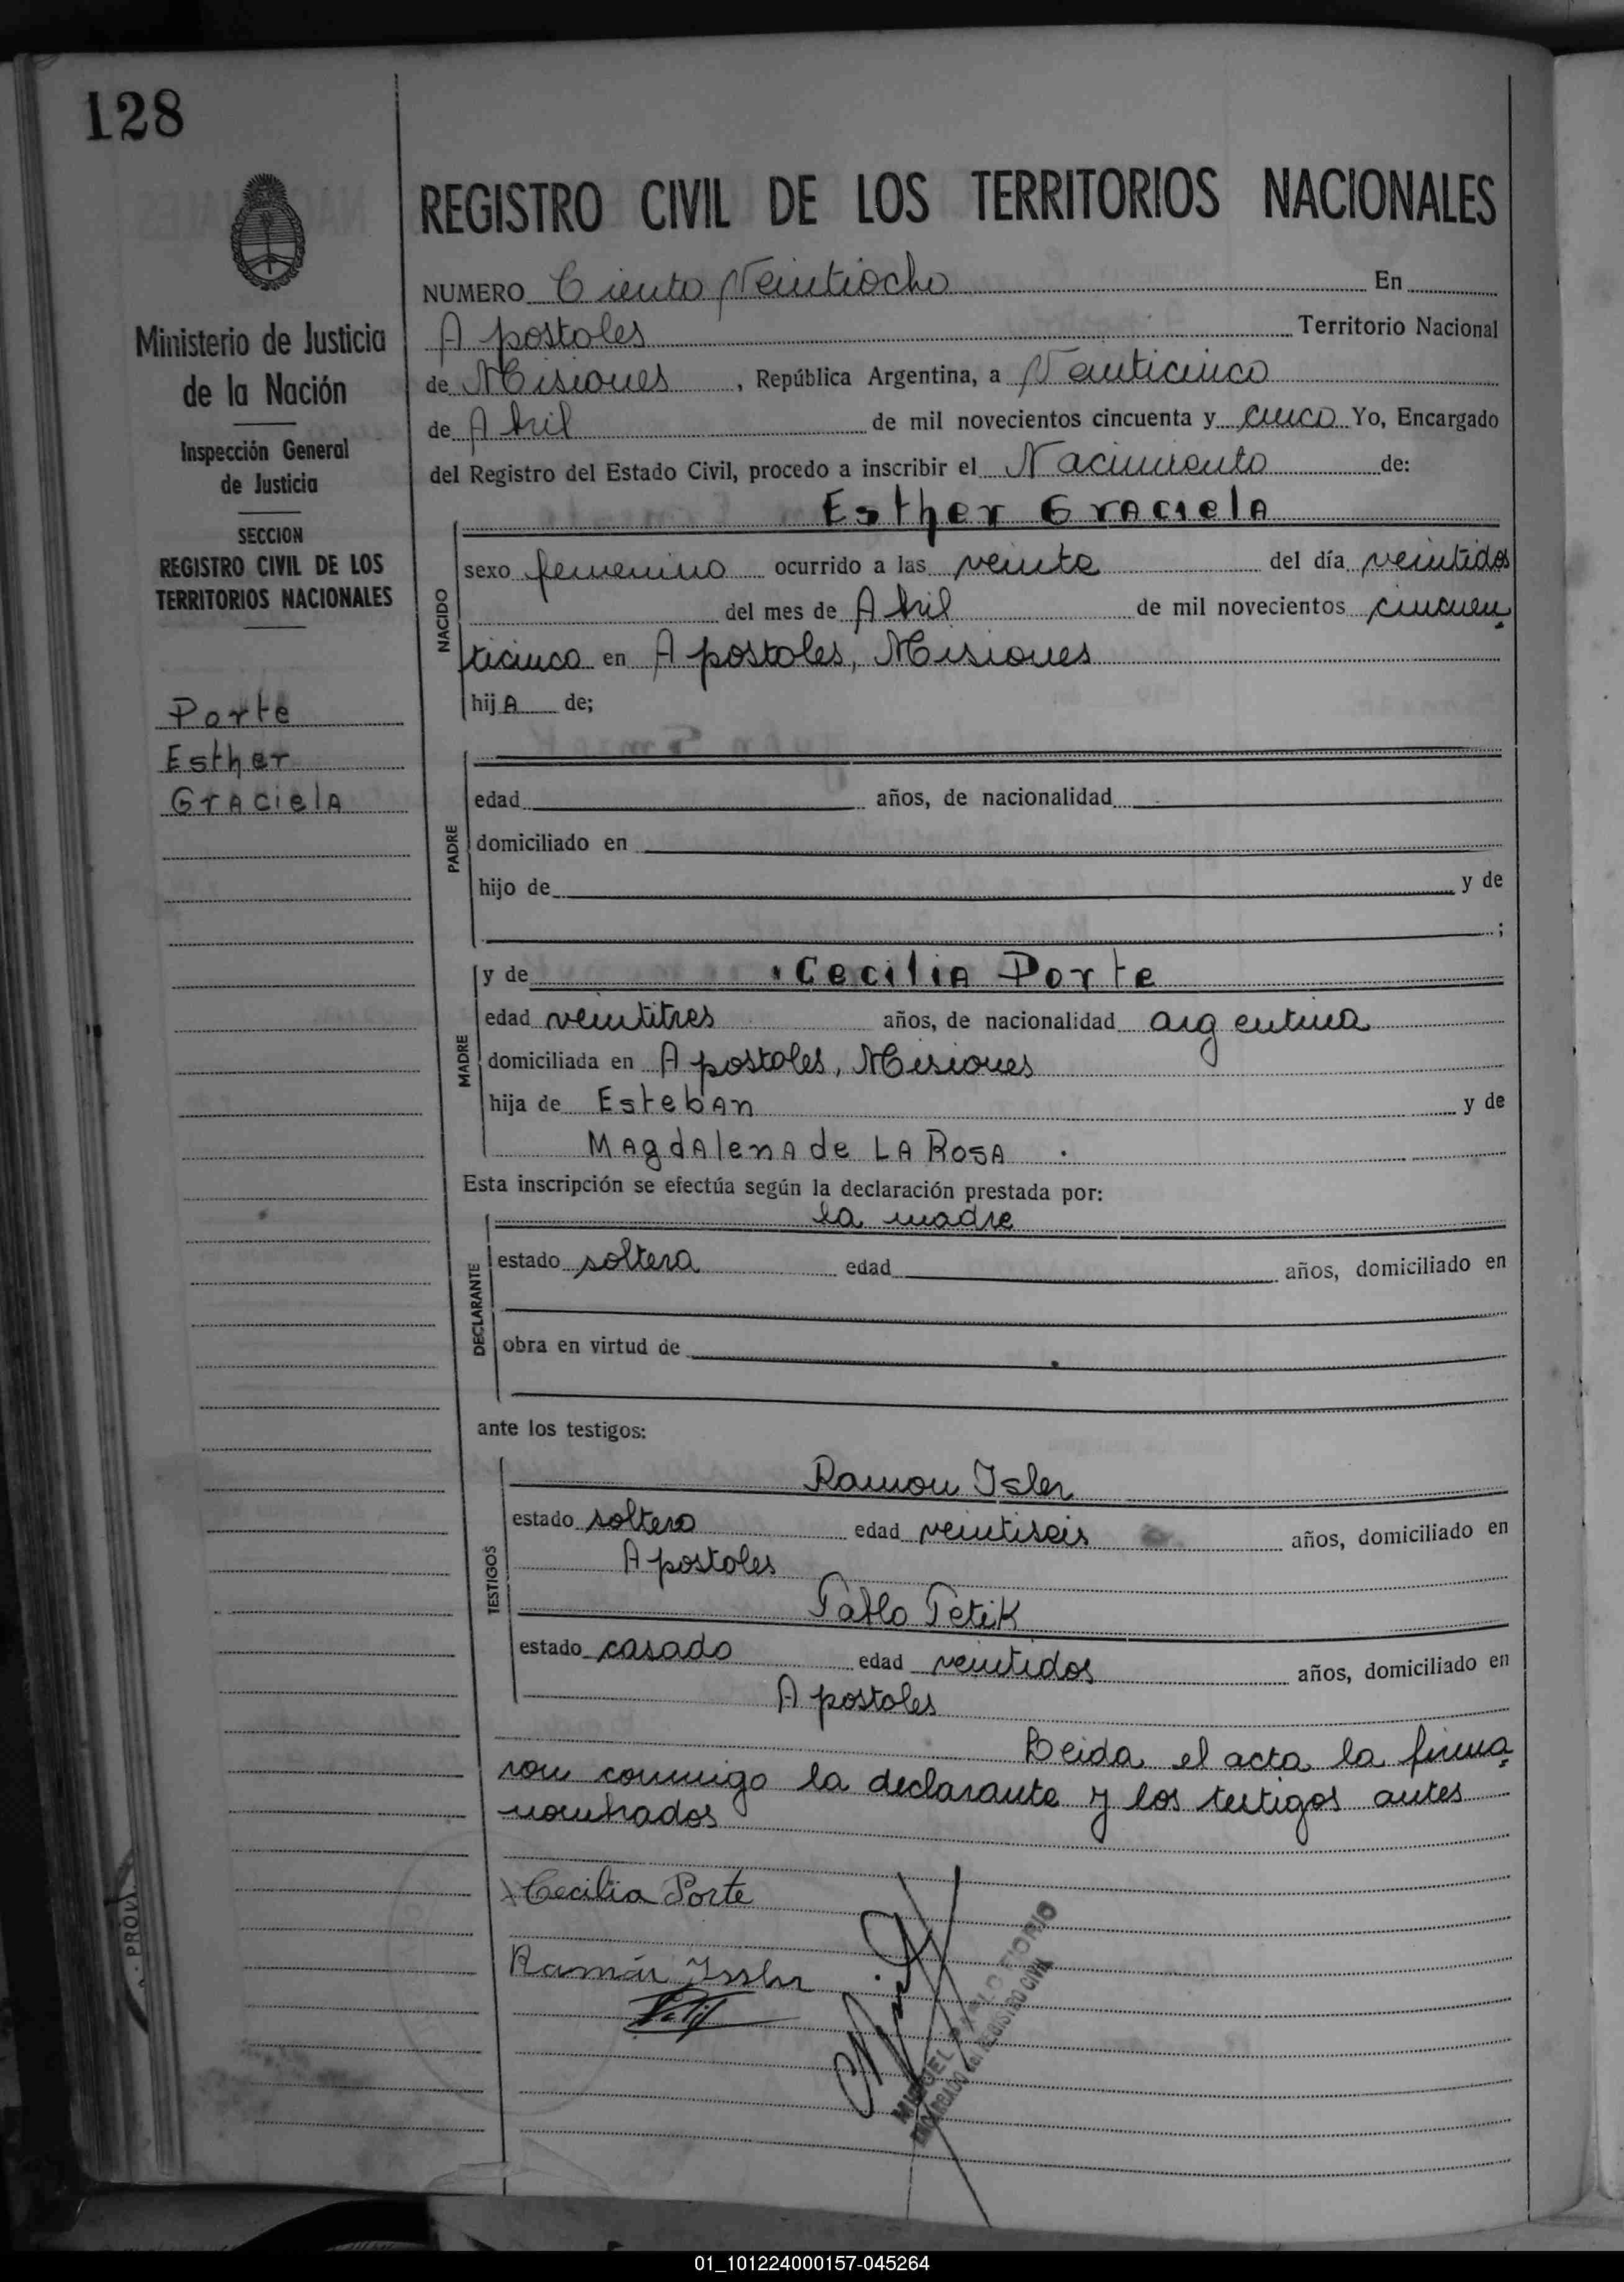 128
REGISTRO CIVIL DE LOS TERRITORIOS NACIONALES
Ministerio de Justicia
de la Nación
Inspección General
de Justicia
SECCION
REGISTRO CIVIL DE LOS
TERRITORIOS NACIONALES
Porte
Esther
Graciela
NUMERO Ciento Veintiocho En
Apostoles Territorio Nacional
de Misiones, República Argentina, a Veinticinco
de Abril de mil novecientos cincuenta y cinco Yo, Encargado
del Registro del Estado Civil, procedo a inscribir el Nacimiento de:
NACIDO
Esther Graciela
sexo femenino ocurrido a las veinte del día veintidos
del mes de Abril de mil novecientos cincuen
ticinco en Apostoles, Misiones
hijA de;
PADRE
edad años, de nacionalidad
domiciliado en
hijo de y de
;
MADRE
y de Cecilia Porte
edad veintitres años, de nacionalidad argentina
domiciliada en Apostoles, Misiones
hija de Esteban y de
Magdalena de LA ROSA .
Esta inscripción se efectúa según la declaración prestada por:
DECLARANTE
la madre
estado soltera edad años, domiciliado en
obra en virtud de
ante los testigos:
TESTIGOS
Ramon Isler
estado soltero edad veintiseis años, domiciliado en
Apostoles
Pablo Petik
estado casado edad veintidos años, domiciliado en
Apostoles
Leida el acta la firma
ron conmigo la declarante y los testigos antes
nombrados
Cecilia Porte
Ramón Issler
MIGUEL
ENCARGADO REGISTRO CIVIL
PROV.
01_101224000157-045264